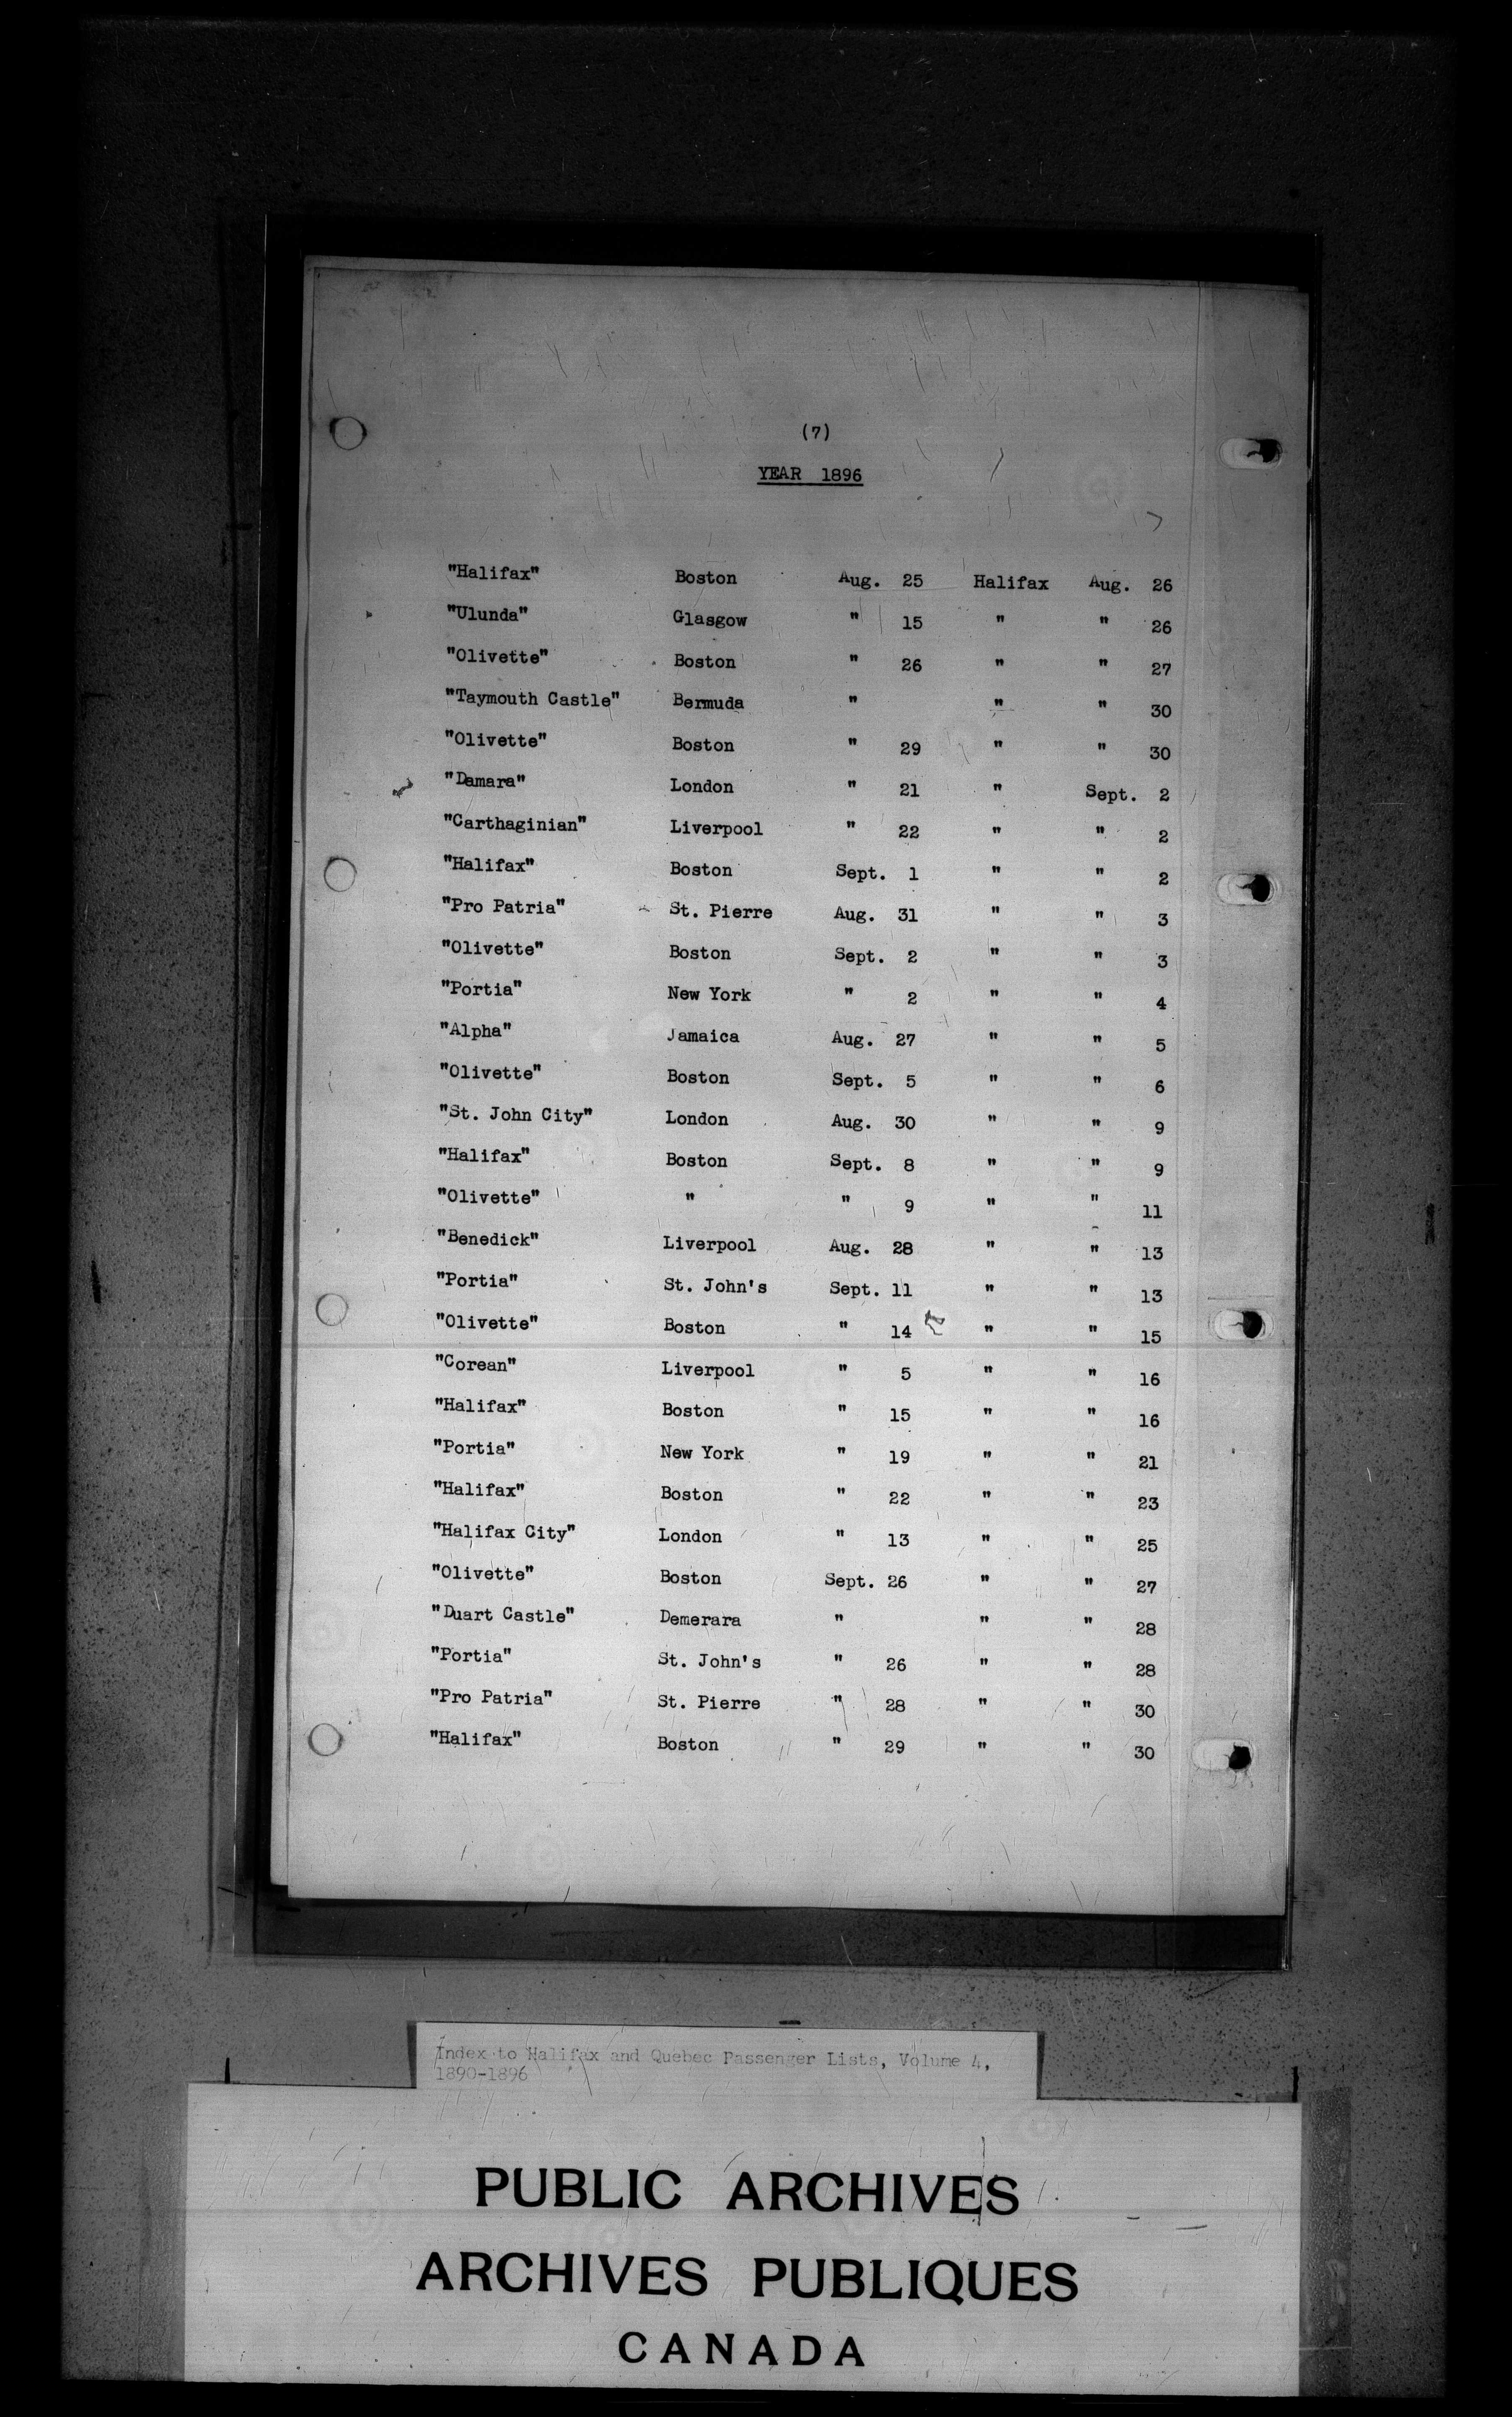 (7)
YEAR 1896
"Halifax" Boston Aug. 25 Halifax Aug. 26
"Ulunda" Glasgow " 15 " " 26
"Olivette" Boston " 26 " " 27
"Taymouth Castle" Bermuda " " " 30
"Olivette" Boston " 29 " " 30
"Damara" London " 21 " Sept. 2
"Carthaginian" Liverpool " 22 " " 2
"Halifax" Boston Sept. 1 " " 2
"Pro Patria" St. Pierre Aug. 31 " " 3
"Olivette" Boston Sept. 2 " " 3
"Portia" New York " 2 " " 4
"Alpha" Jamaica Aug. 27 " " 5
"Olivette" Boston Sept. 5 " " 6
"St. John City" London Aug. 30 " " 9
"Halifax" Boston Sept. 8 " " 9
"Olivette" " " 9 " " 11
"Benedick" Liverpool Aug. 28 " " 13
"Portia" St. John's Sept. 11 " " 13
"Olivette" Boston " 14 " " 15
"Corean" Liverpool " 5 " " 16
"Halifax" Boston " 15 " " 16
"Portia" New York " 19 " " 21
"Halifax" Boston " 22 " " 23
"Halifax City" London " 13 " " 25
"Olivette" Boston Sept. 26 " " 27
"Duart Castle" Demerara " " " 28
"Portia" St. John's " 26 " " 28
"Pro Patria" St. Pierre " 28 " " 30
"Halifax" Boston " 29 " " 30
Index to Halifax and Quebec Passenger Lists, Volume 4,
1890-1896
PUBLIC ARCHIVES
ARCHIVES PUBLIQUES
CANADA